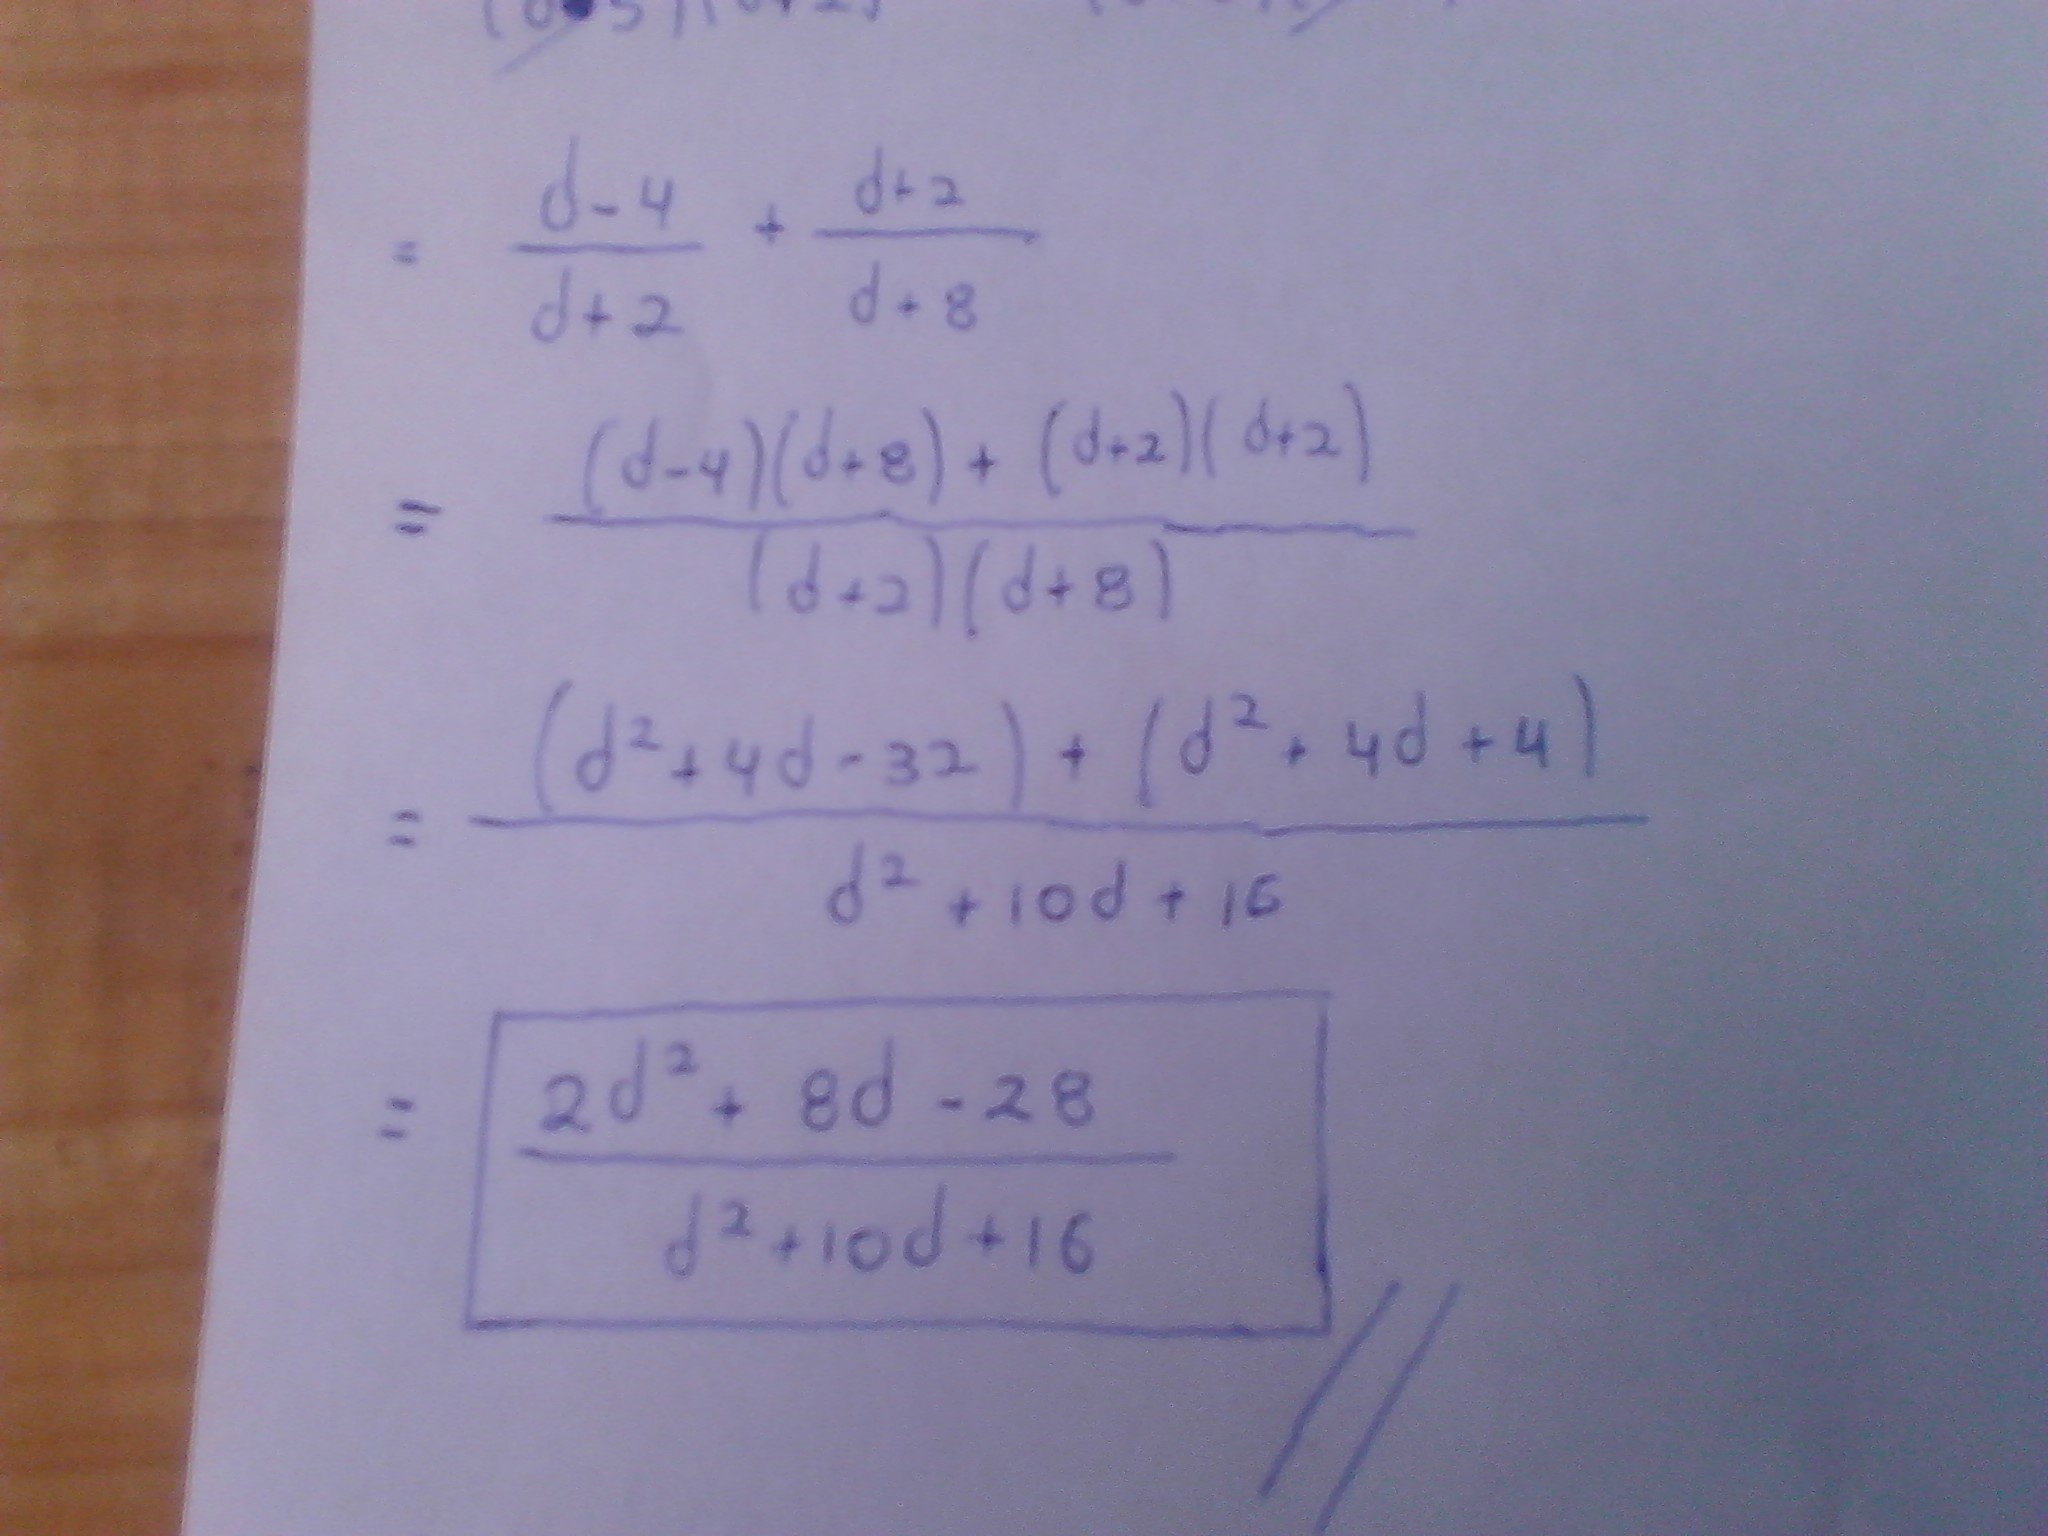 = (d-4)/(d+2) + (d+2)/(d+8)
= ((d-4)(d+8) + (d+2)(d+2))/((d+2)(d+8))
= ((d²+4d-32) + (d²+4d+4))/(d²+10d+16)
= (2d²+8d-28)/(d²+10d+16)